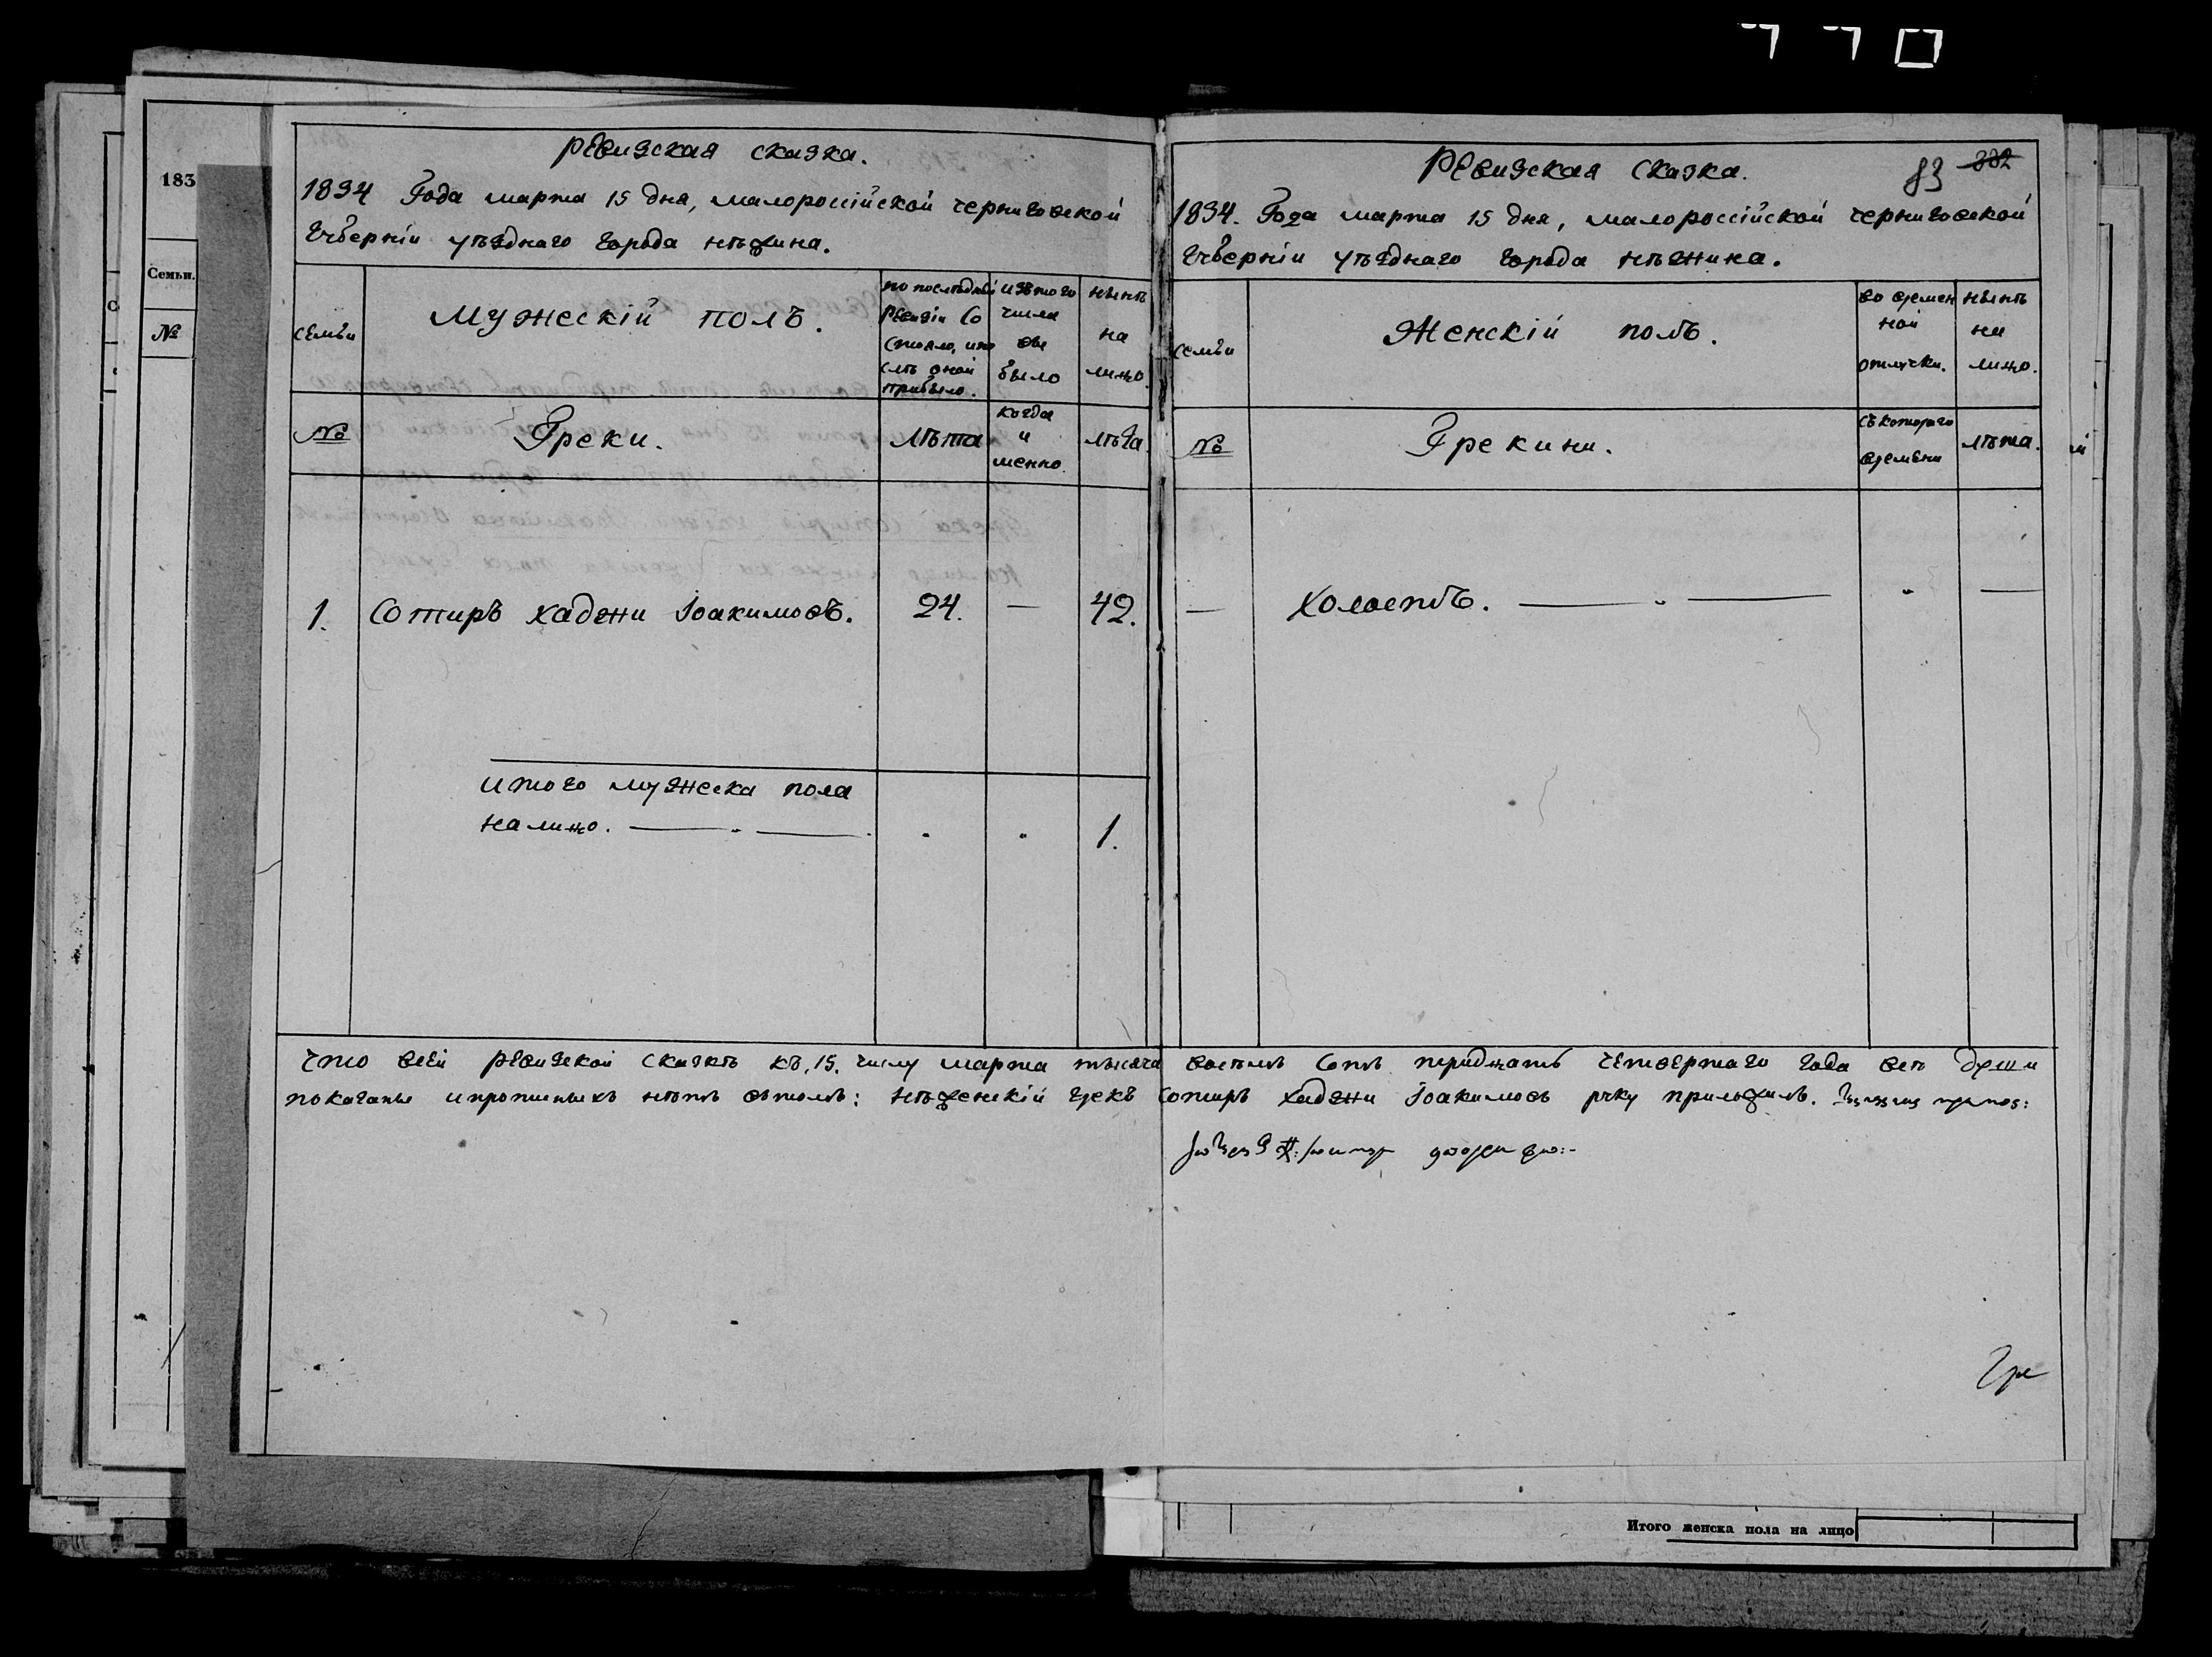 Ревизская сказка.
1834 Года марта 15 дня, малороссійской черниговской
Губерніи уѣзднаго города нѣжина.
семьи
Мужескій полъ.
по послѣдней
Ревизіи Со
стояло, или
слѣ оной
прибыло.
изъ того
числа
вы
было
нынѣ
на
лицо.
№
Греки.
лѣта
когда
и
менно.
лѣта.
1. Сотиръ хаджи Іоакимовъ. 24. — 42.
итого мужеска пола
налицо. — „ — . „ „ 1.
Ревизская Сказка.
83 332
1834. Года марта 15 дня, малороссійской черниговской
Губерніи уѣзднаго города нѣжина.
семьи
Женскій полъ.
во времен
ной
отлучки.
нынѣ
на
лицо.
№
Грекини.
съ котораго
времени
лѣта.
— холостъ. — „ — „ —
что всей ревизской сказкѣ къ, 15. числу марта тысяча восемь сотъ тридцать четвертаго года всѣ души
показаны и протчихъ нѣтъ въ томъ: нѣженскій грекъ Сотиръ хаджи Іоакимовъ руку приложилъ.
183
Семьи.
№
Итого женска пола на лицо